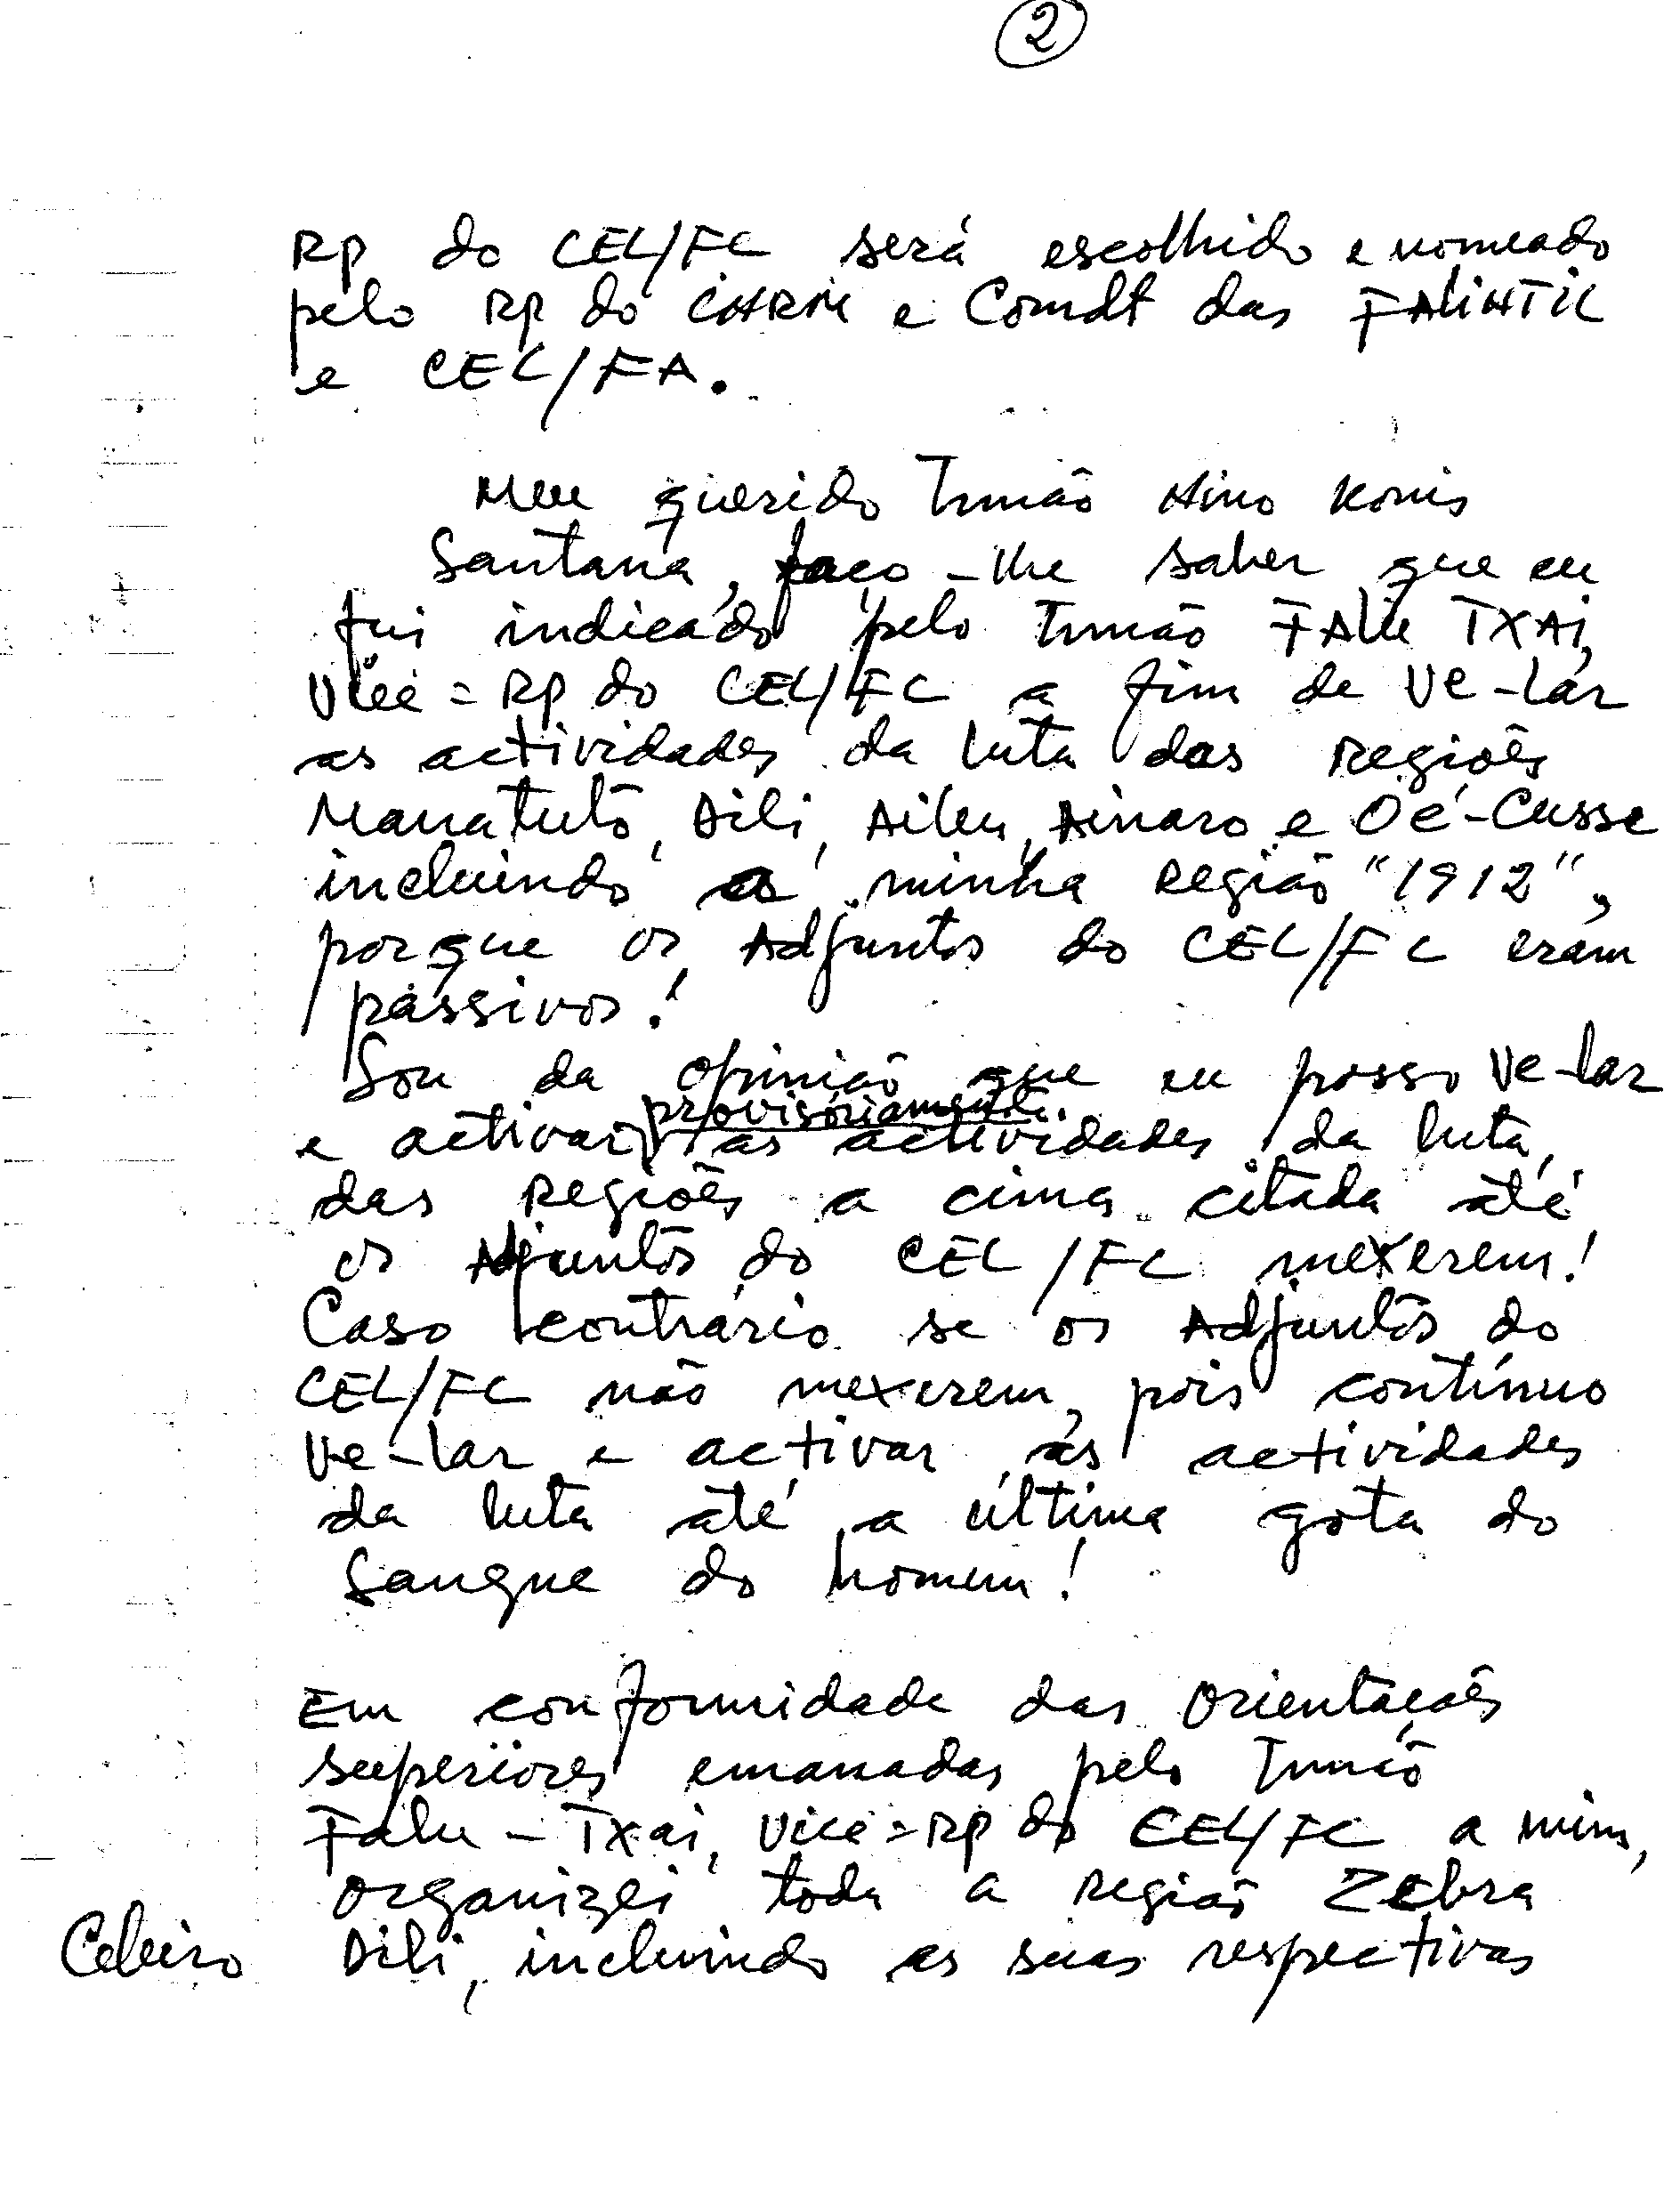 2
Rp do CEL/FC será escolhido e nomeado
pelo Rp do CNRM e Comdt das FALINTIL
e CEL/FA.
Meu querido Irmão Nino Konis
Santana, faço-lhe saber que eu
fui indicado pelo Irmão FALU TXAI,
Vice=Rp do CEL/FC a fim de ve-lar
as actividades da luta das Regiões
Manatuto, Dili, Aileu, Ainaro e Oé-Cusse
incluindo a minha Região "1912",
porque os Adjuntos do CEL/FC eram
passivos!
Sou da opinião que eu posso ve-lar
e activar provisóriamente as actividades da luta,
das Regiões a cima citada até
os Adjuntos do CEL/FC mexerem!
Caso contrário se os Adjuntos do
CEL/FC não mexerem, pois contínuo
ve-lar e activar as actividades
da luta até a última gota do
Sangue do homem!
Em conformidade das Orientações
superiores emanadas pelo Irmão
Falu-Txai, Vice=Rp do CEL/FC a mim,
organizei toda a Região Zebra
Dili, incluindo as suas respectivas